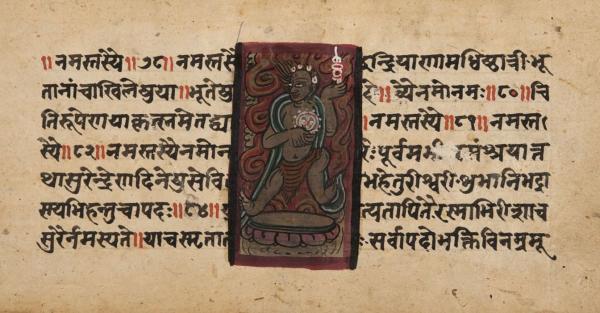 ॥नमस्तस्यै॥७८॥नमस्तस्यै न्द्रियाणामधिष्ठात्री भू
तानांचाखिलेषुया॥भूतेषु व्यैनमोनमः॥८०॥चि
तिरूपेणयाकृत्स्नमेतद्व्या ॥नमस्तस्यै॥८१॥नमस्त
स्यै॥८२॥नमस्तस्यैनमोन ःपूर्वमभी संश्रयात्त
थासुरेन्द्रेणदिनेषुसेवि भहेतुरीश्वरीशुभानिभद्रा
ण्यभिहन्तुचापदः॥८४॥ त्यतापितैरस्माभिरीशाच
सुरैर्नमस्यते॥याचस्मृतात सर्वापदोभक्तिविनम्रमू